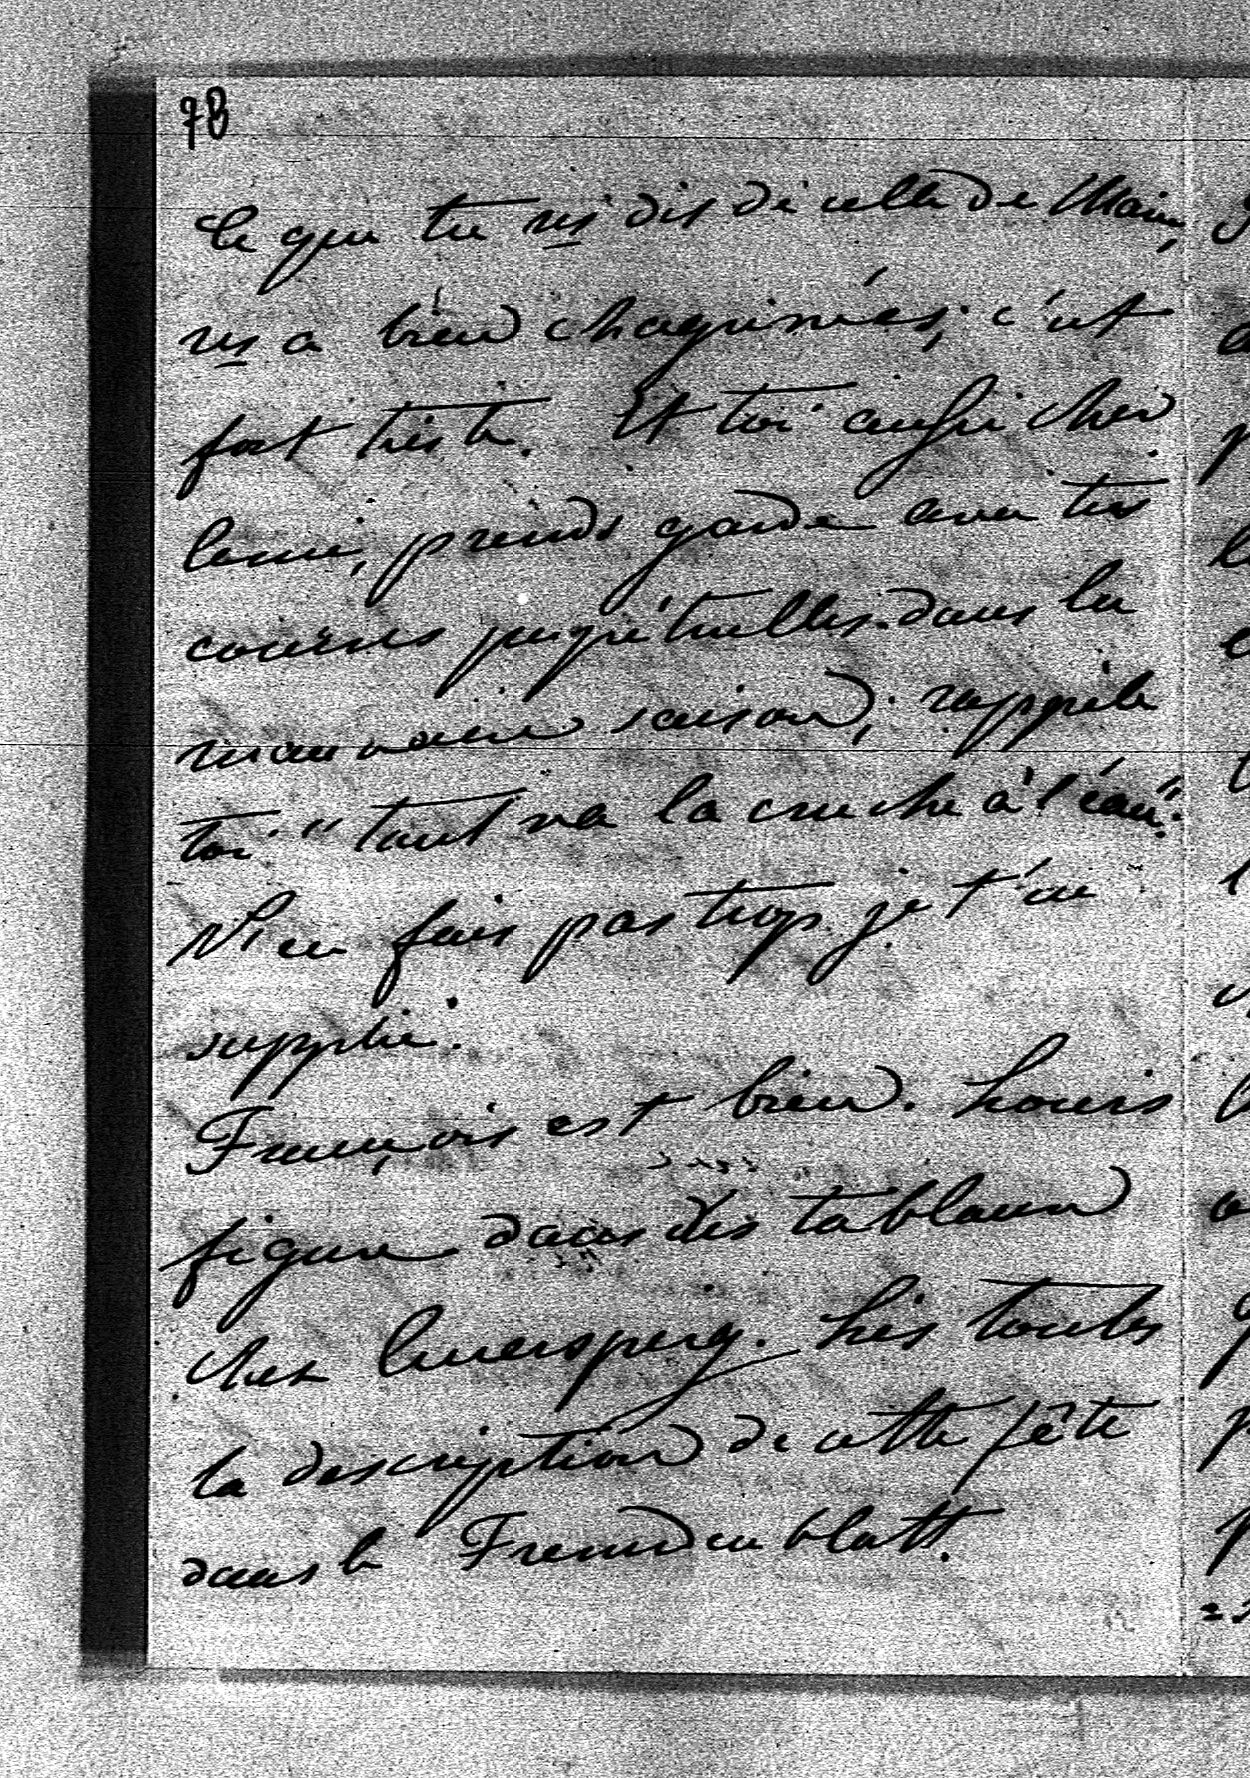 78
Ce que tu ns dis de celle de Marie,
ns a bien chagrinées; c'est
fort triste. Et toi aussi cher
ami, prends garde avec tes
courses perpétuelles dans la
mauvaise saison; rappèle
toi "tant va la cruche à l'eau".
N'en fais pas trop je t'en
supplie.
François est bien. Louis
figure dans des tableaux
chez Auersperg. Lis toutes
la description de cette fête
dans le Fremdenblatt.